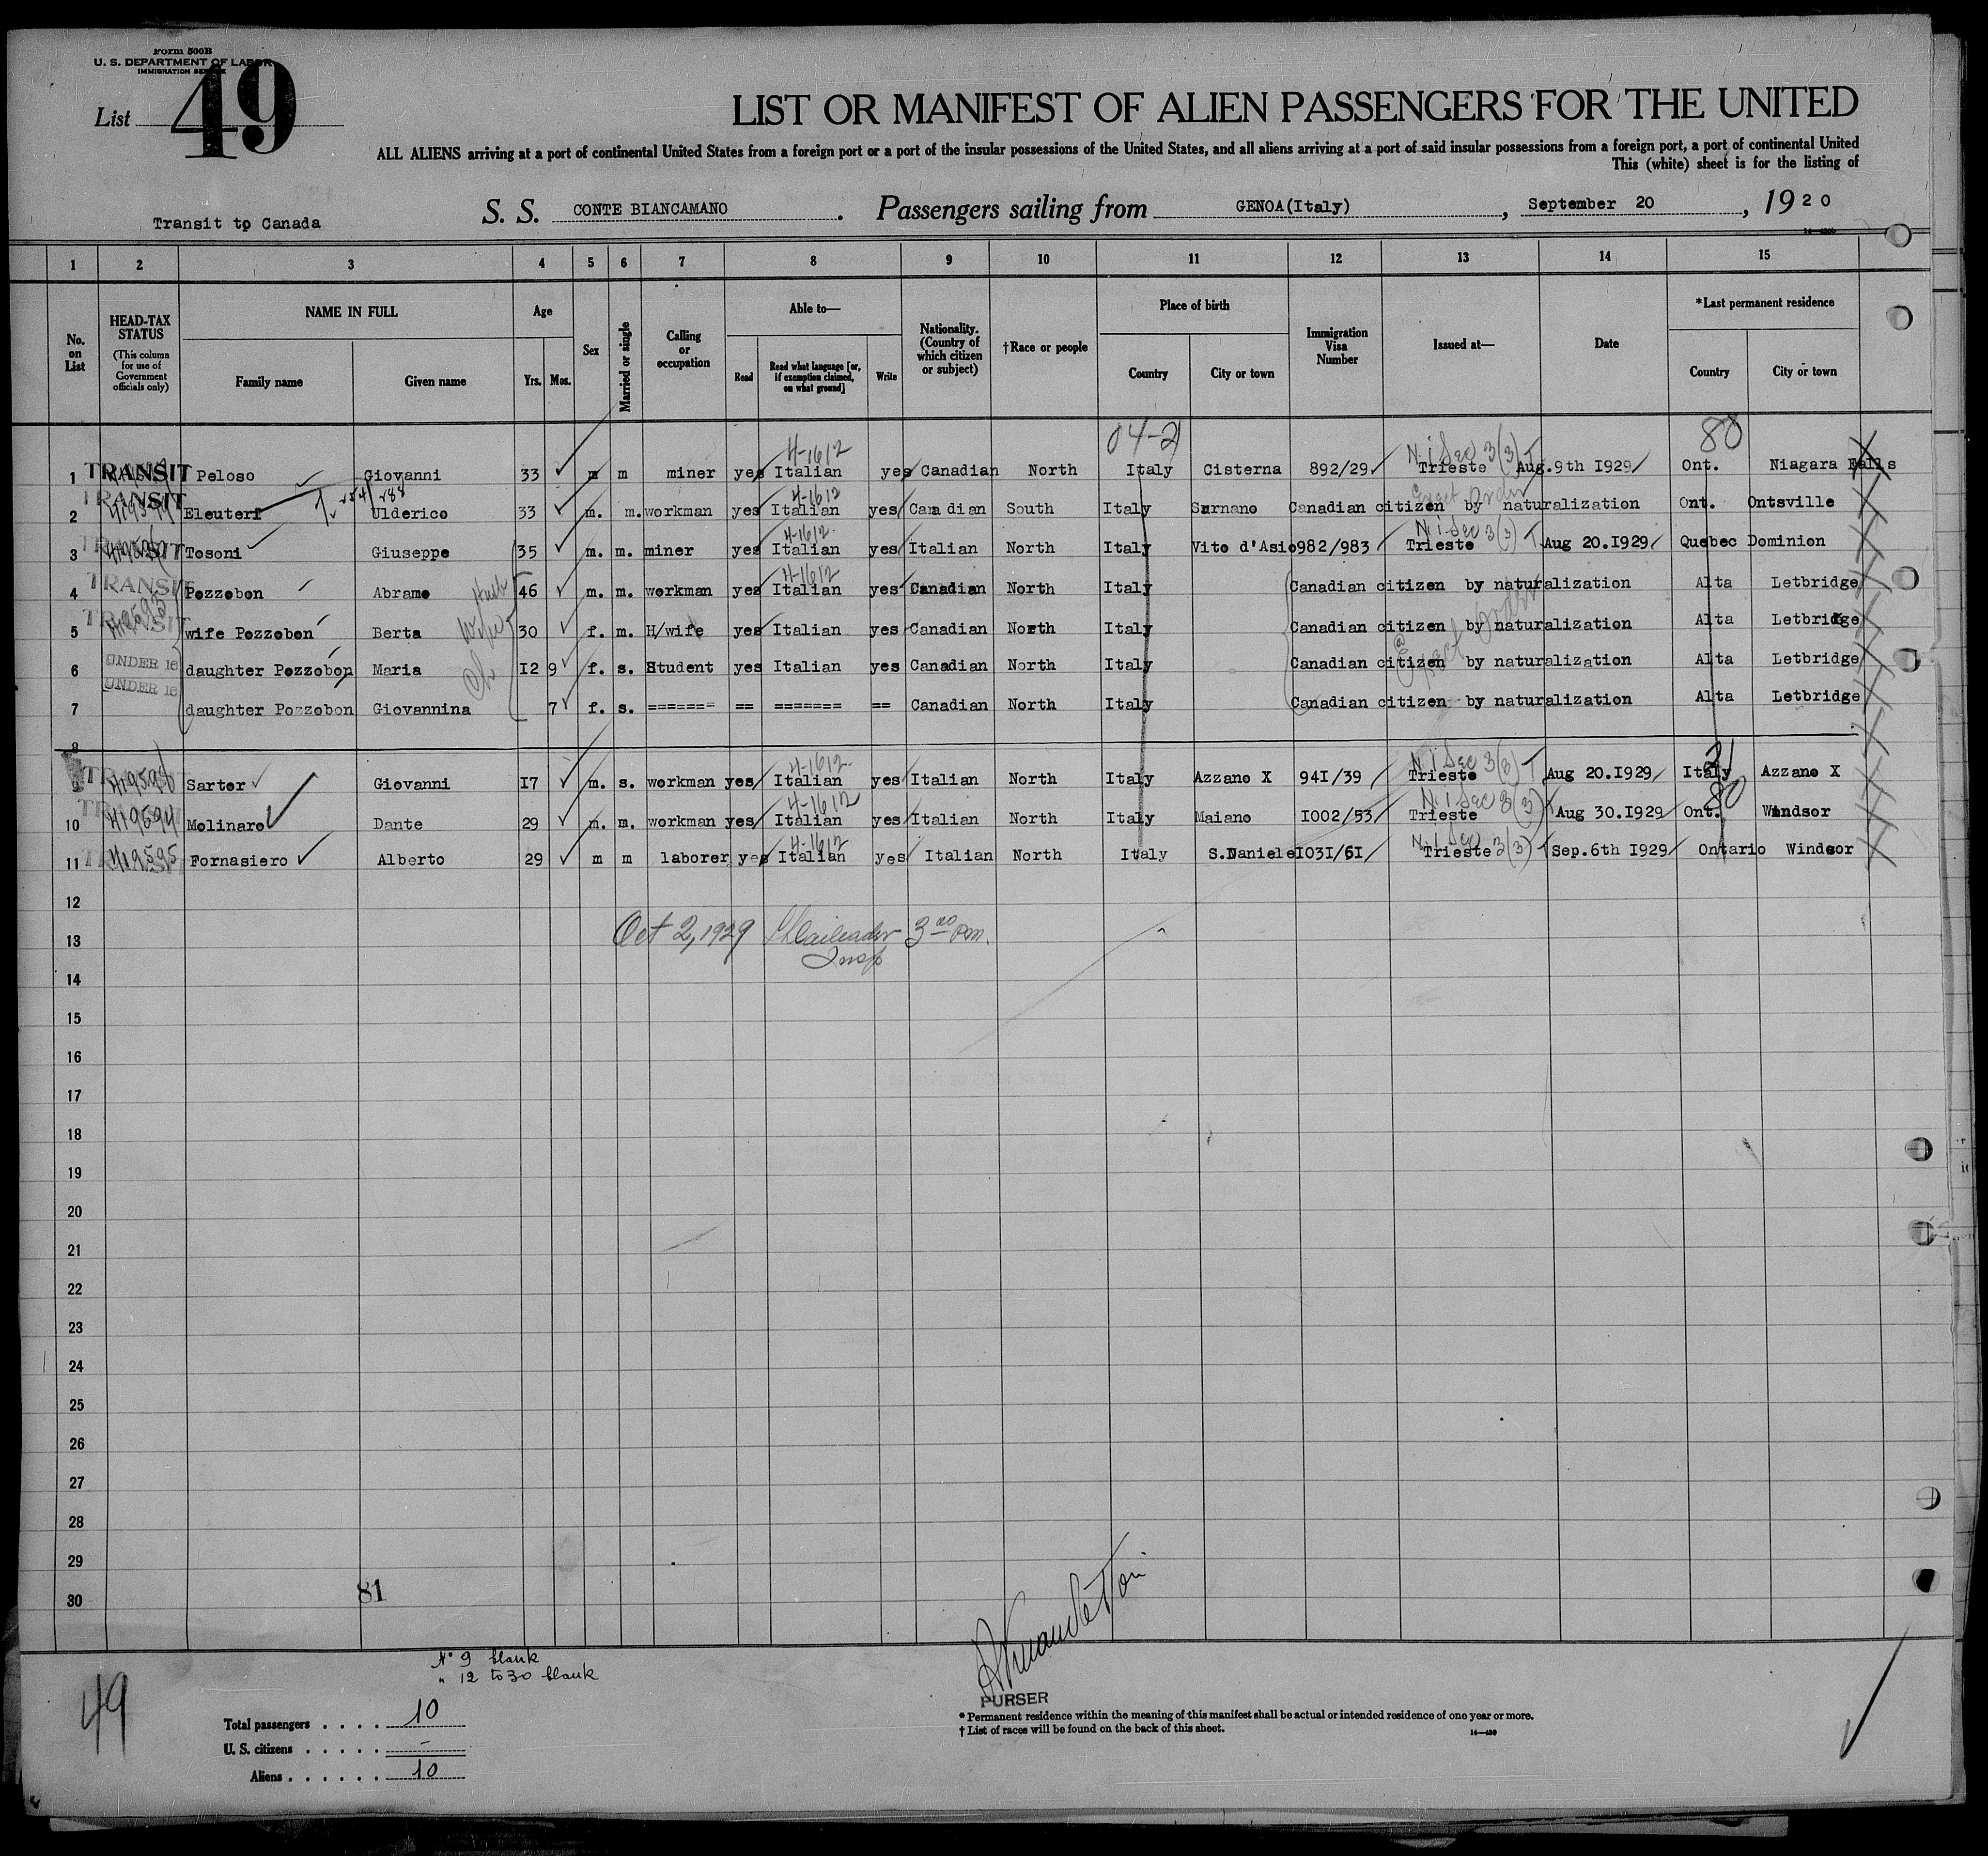 Form 500B
U. S. DEPARTMENT OF LABOR
IMMIGRATION SERVICE
List 49
LIST OR MANIFEST OF ALIEN PASSENGERS FOR THE UNITED
ALL ALIENS arriving at a port of continental United States from a foreign port or a port of the insular possessions of the United States, and all aliens arriving at a port of said insular possessions from a foreign port, a port of continental United
This (white) sheet is for the listing of
Transit to Canada
S. S. CONTE BIANCAMANO . Passengers sailing from GENOA(Italy) , September 20 , 1920
1 2 3 4 5 6 7 8 9 10 11 12 13 14 15
No. on List
HEAD-TAX STATUS (This column for use of Government officials only)
NAME IN FULL Family name Given name
Age Yrs. Mos.
Sex
Married or single
Calling or occupation
Able to— Read Read what language [or, if exemption claimed, on what ground] Write
Nationality. (Country of which citizen or subject)
†Race or people
Place of birth Country City or town
Immigration Visa Number
Issued at—
Date
*Last permanent residence Country City or town
04-2 80
4-1612 N.i Sec 3(3) T
1 TRANSIT Peloso Giovanni 33 m m miner yes Italian yes Canadian North Italy Cisterna 892/29 Trieste Aug.9th I929 Ont. Niagara Falls
4-1612
2 TRANSIT Eleuteri Ulderico 33 m. m. workman yes Italian yes Canadian South Italy Sarnano Canadian citizen by naturalization Ont. Ontsville
4-1612 N i Sec 3(3) T
3 TRANSIT Tosoni Giuseppe 35 m. m. miner yes Italian yes Italian North Italy Vito d'Asio 982/983 Trieste Aug 20.I929 Quebec Dominion
4-1612
4 TRANSIT Pozzobon Abramo 46 m. m. workman yes Italian yes Canadian North Italy Canadian citizen by naturalization Alta Letbridge
5 TRANSIT wife Pozzobon Berta 30 f. m. H/wife yes Italian yes Canadian North Italy Canadian citizen by naturalization Alta Letbridge
6 UNDER 16 daughter Pozzobon Maria I2 9 f. s. Student yes Italian yes Canadian North Italy Canadian citizen by naturalization Alta Letbridge
7 UNDER 16 daughter Pozzobon Giovannina 7 f. s. ======= == ======= == Canadian North Italy Canadian citizen by naturalization Alta Letbridge
8
4-1612 N i Sec 3(3) T 21
9 TRANSIT Sartor Giovanni I7 m. s. workman yes Italian yes Italian North Italy Azzano X 94I/39 Trieste Aug 20.I929 Italy Azzano X
4-1612 N.i Sec 3(3) 80
10 419594 Molinaro Dante 29 m. m. workman yes Italian yes Italian North Italy Maiano I002/53 Trieste Aug 30.I929 Ont. Windsor
4-1612 N.i Sec 3(3)
11 419595 Fornasiero Alberto 29 m m laborer yes Italian yes Italian North Italy S.Daniele I03I/6I Trieste Sep.6th I929 Ontario Windsor
12
13 Oct 2, 1929 3 00 P.m.
Insp
14
15
16
17
18
19
20
21
22
23
24
25
26
27
28
29
30 81
49
No 9 blank
" 12 to 30 blank
Total passengers . . . . 10
U. S. citizens . . . . . -
Aliens . . . . . . 10
PURSER
* Permanent residence within the meaning of this manifest shall be actual or intended residence of one year or more.
† List of races will be found on the back of this sheet.